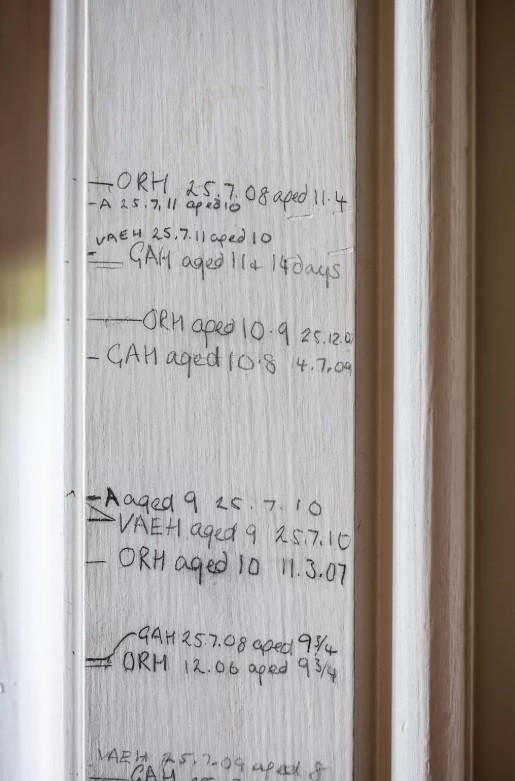 ORH 25.7.08 aged 11.4
A 25.7.11 aged 10
VAEH 25.7.11 aged 10
GAH aged 11 & 14 days
ORH aged 10.9 25.12.0
GAH aged 10.8 4.7.09
A aged 9 25.7.10
VAEH aged 9 25.7.10
ORH aged 10 11.3.07
GAH 25.7.08 aged 9 3/4
ORH 12.06 aged 9 3/4
VAEH 25.7.09 aged 8
GAH